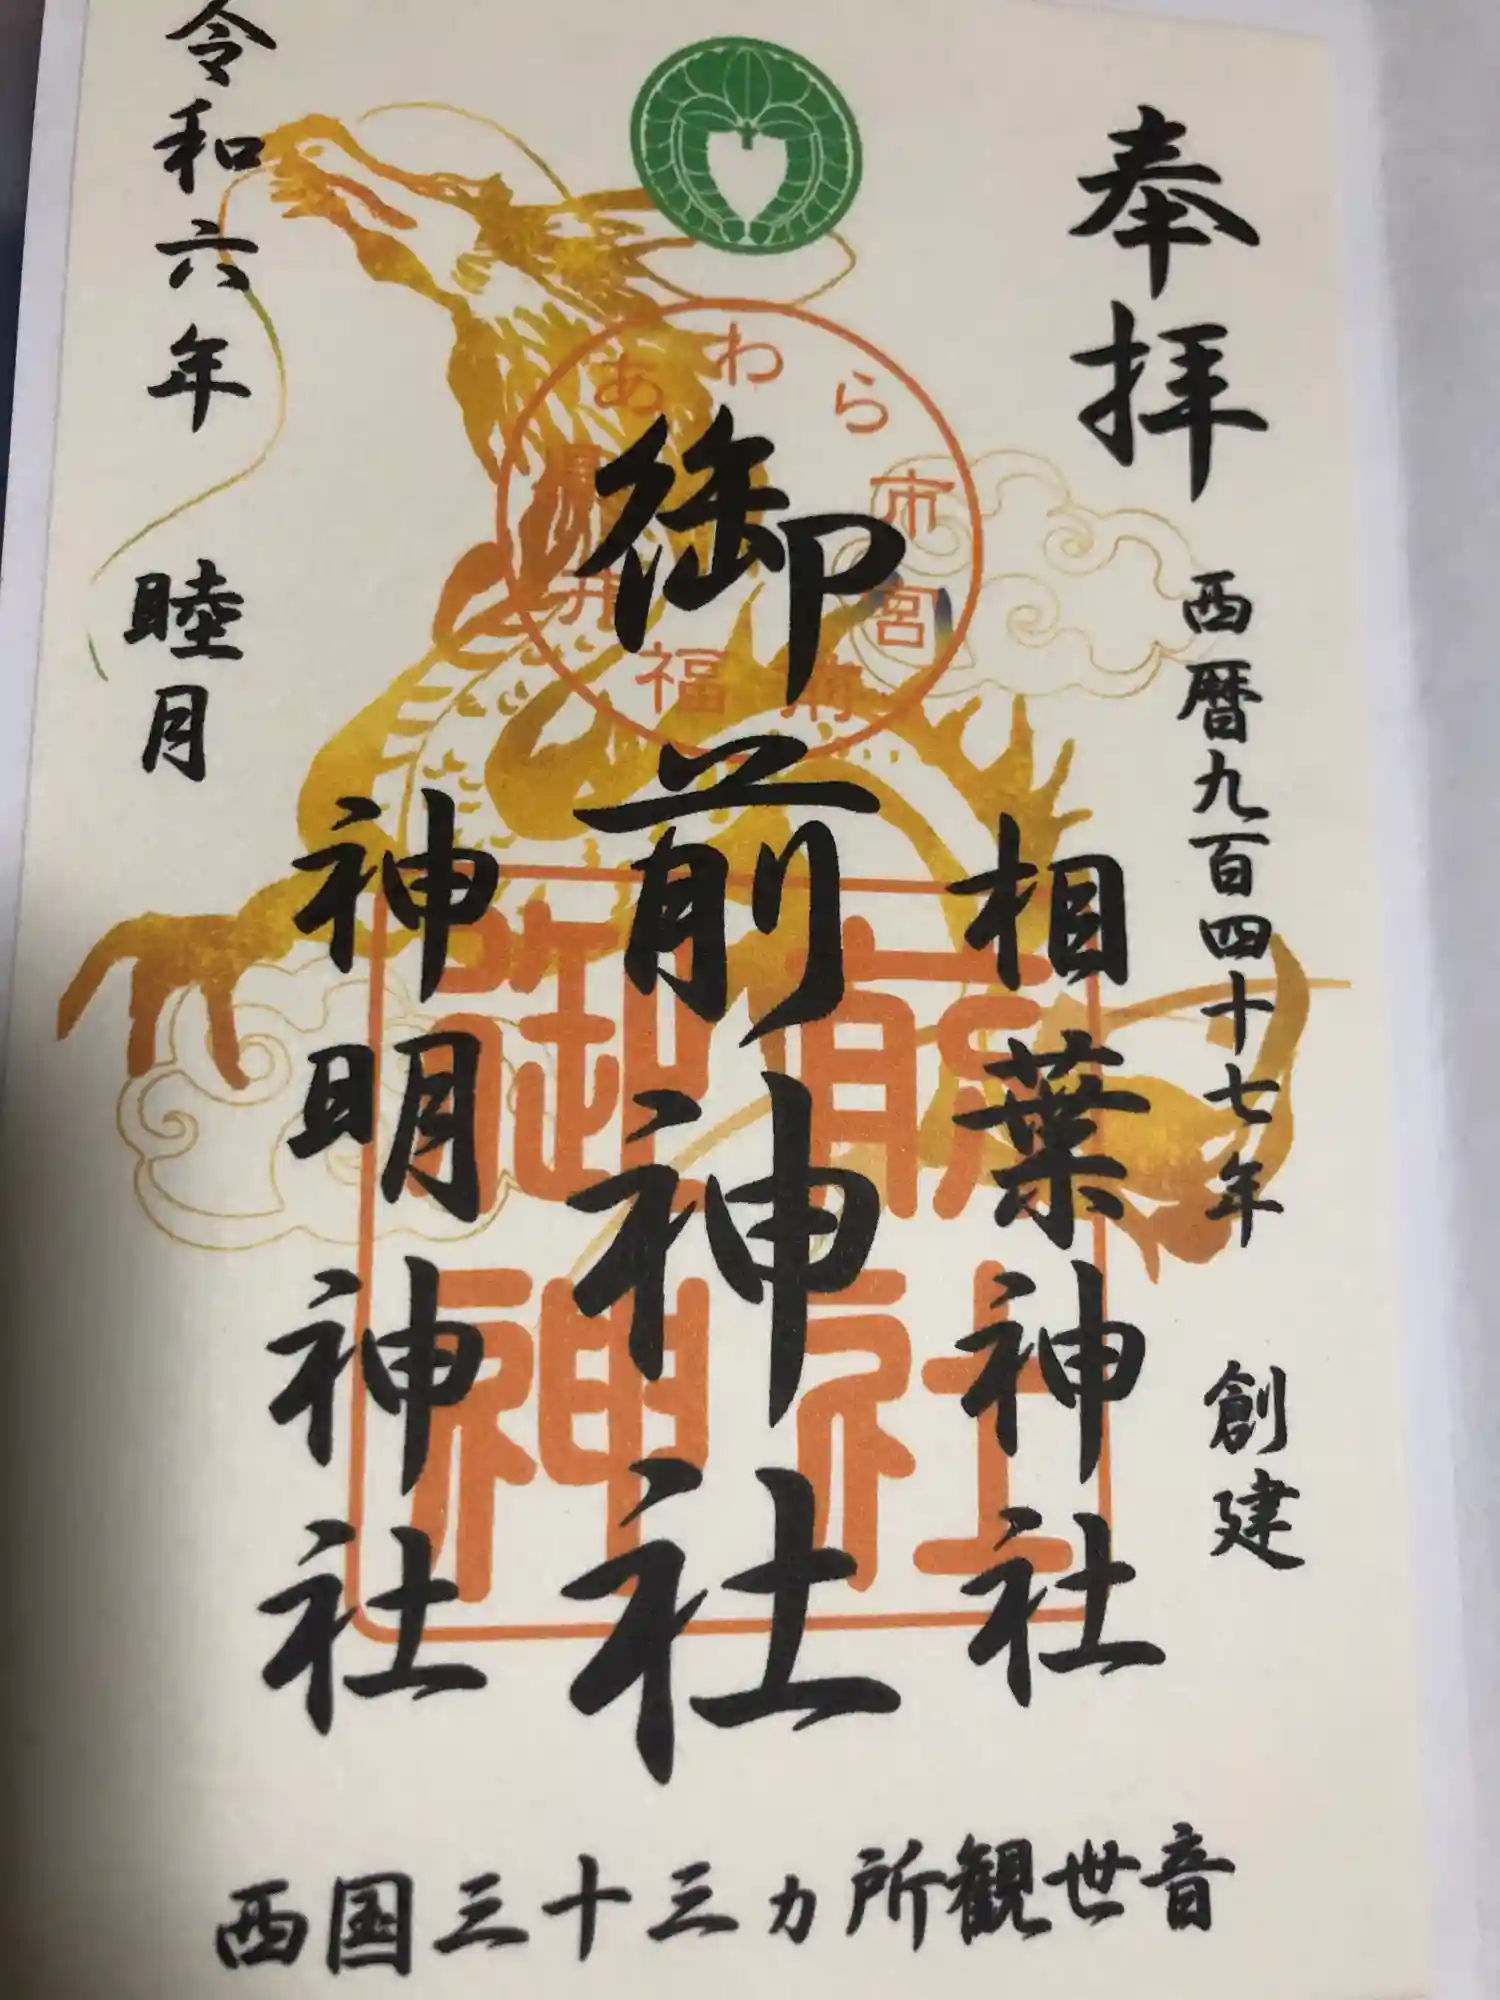 奉拝
西暦九百四十七年 創建
相葉神社
御前神社
神明神社
令和六年 睦月
あわら市宮前 福井県
御前神社
西国三十三ヵ所観世音